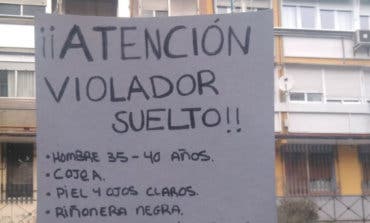 ¡¡ATENCIÓN
VIOLADOR
SUELTO!!
• HOMBRE 35-40 AÑOS.
• COJEA.
• PIEL Y OJOS CLAROS.
• RIÑONERA NEGRA.